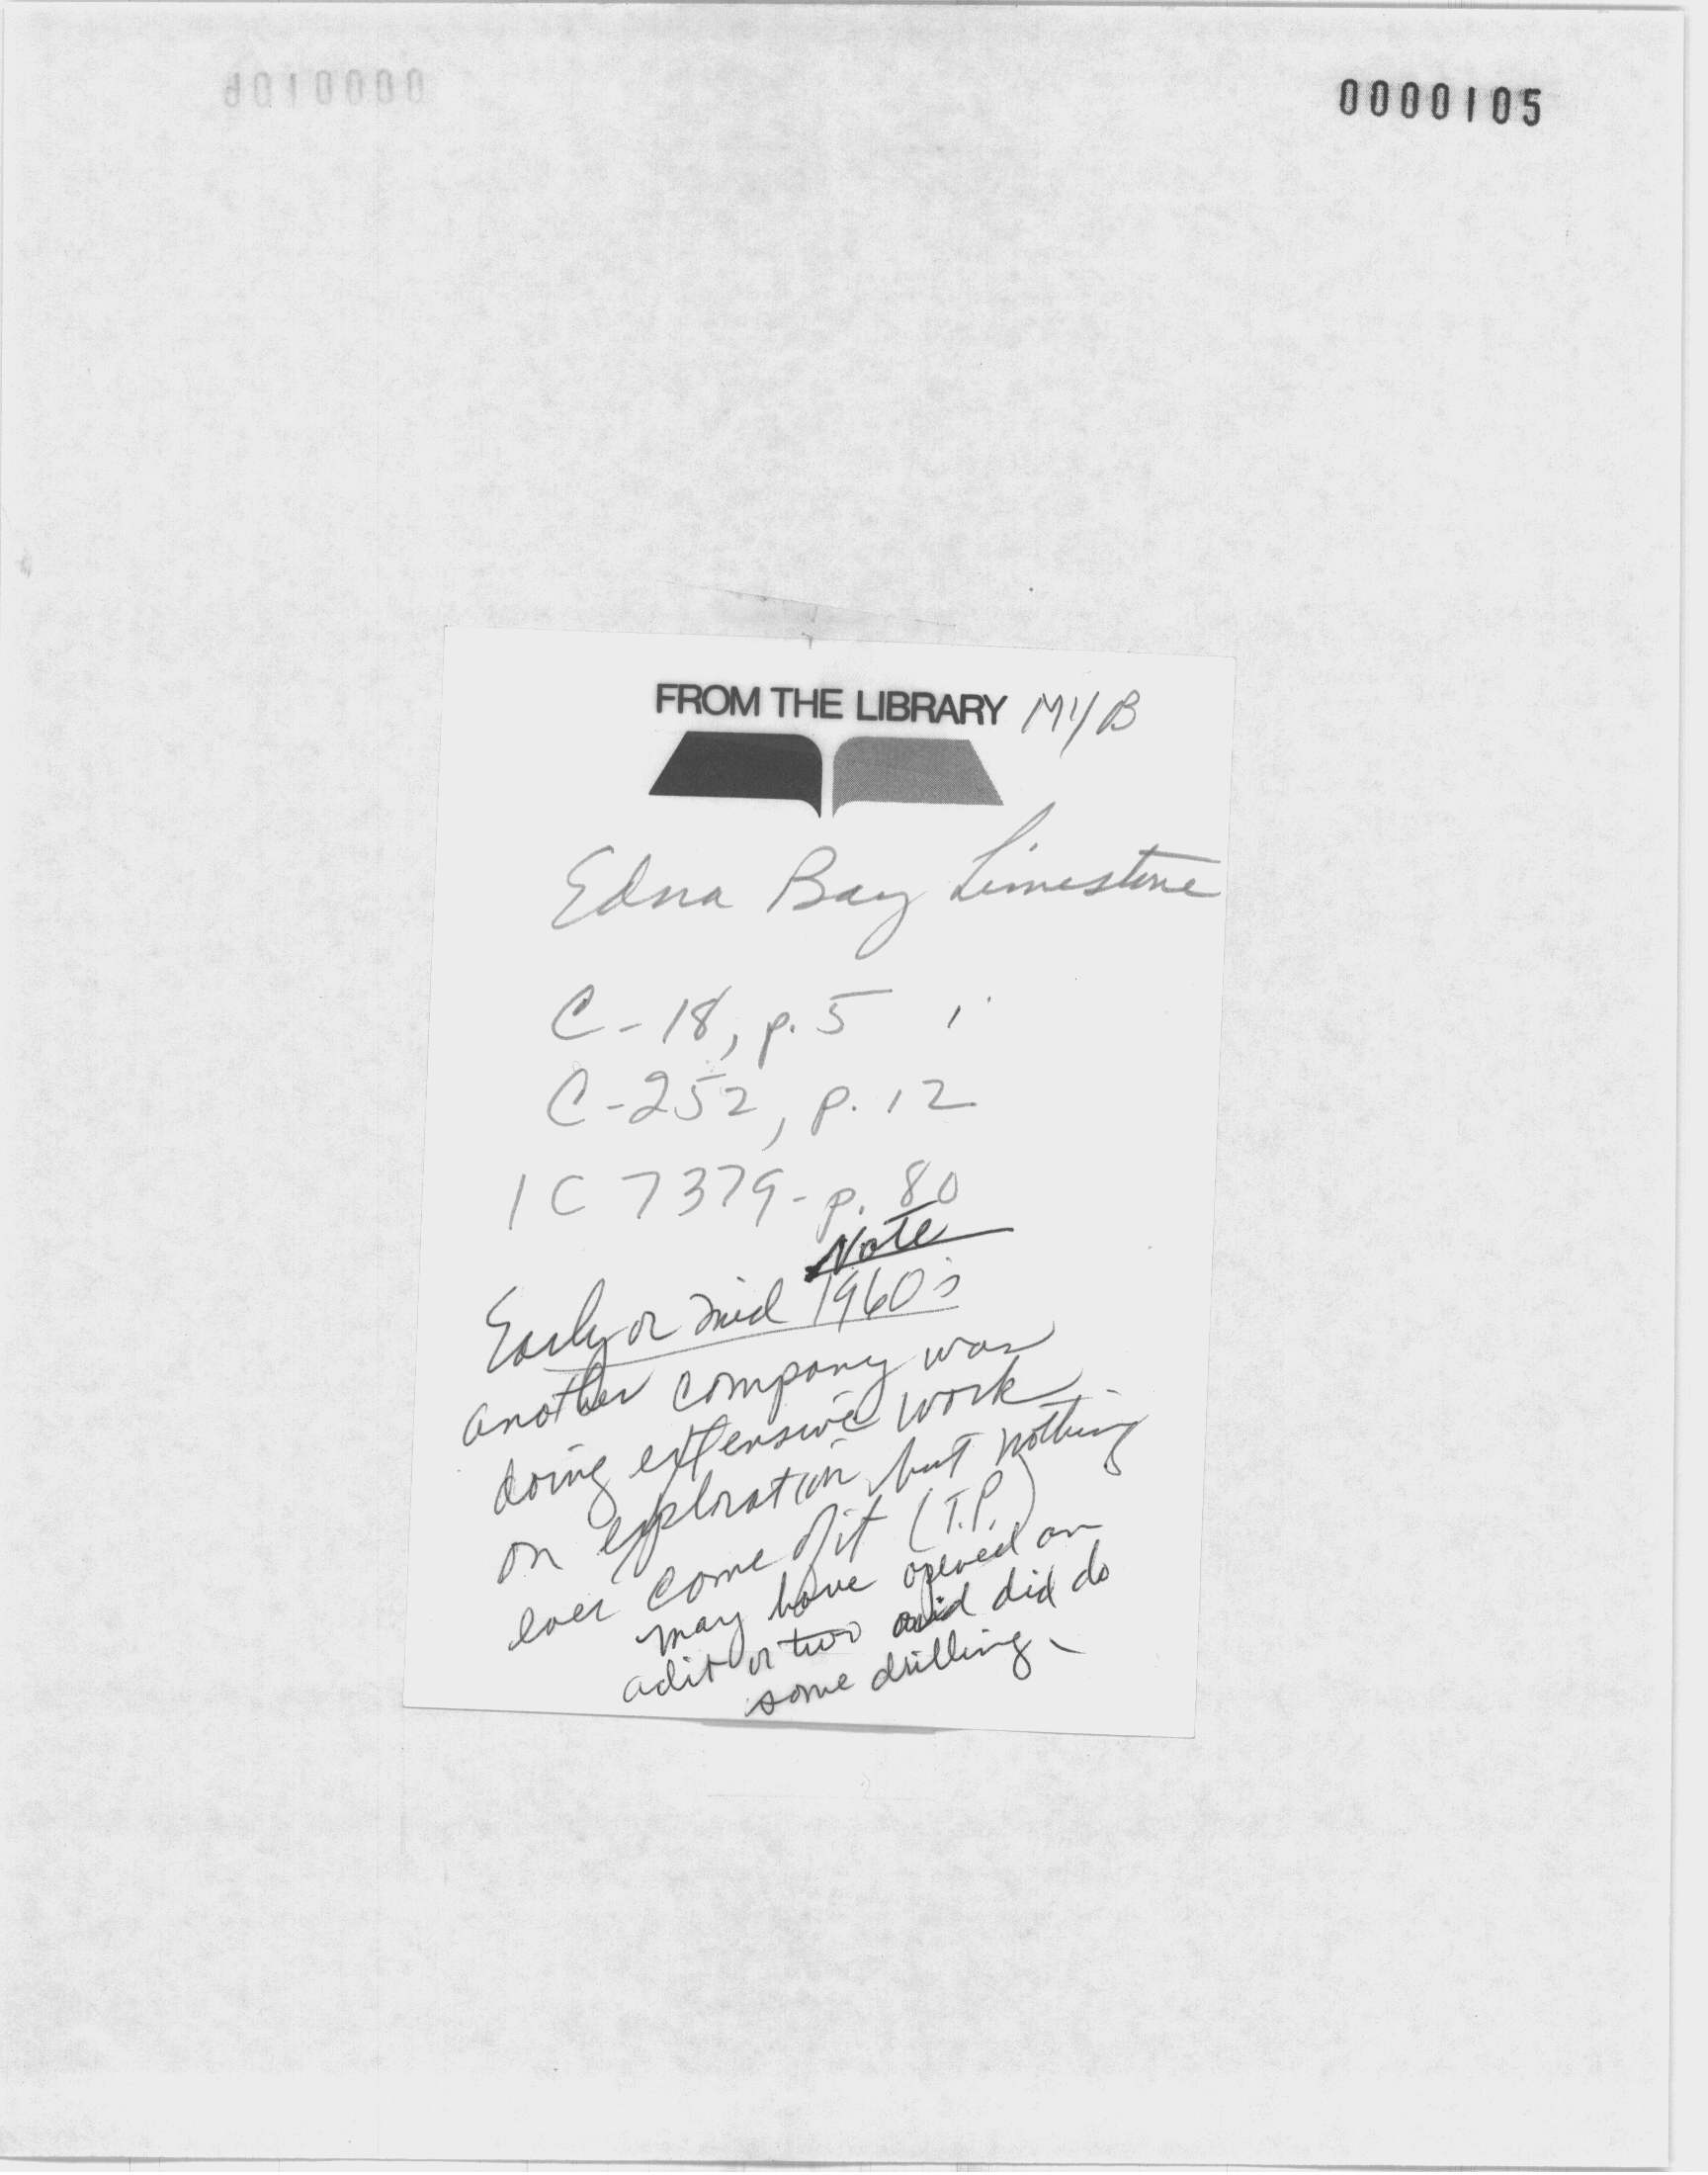 0000105
FROM THE LIBRARY
Edna Bay Limestone
C-18, p. 5
C-252, p. 12
IC 7379-p. 80
Note
Early or mid 1960's
another company was
doing extensive work
on exploration but nothing
ever come of it (T.P.)
may have opened an
adit or two and did do
some drilling